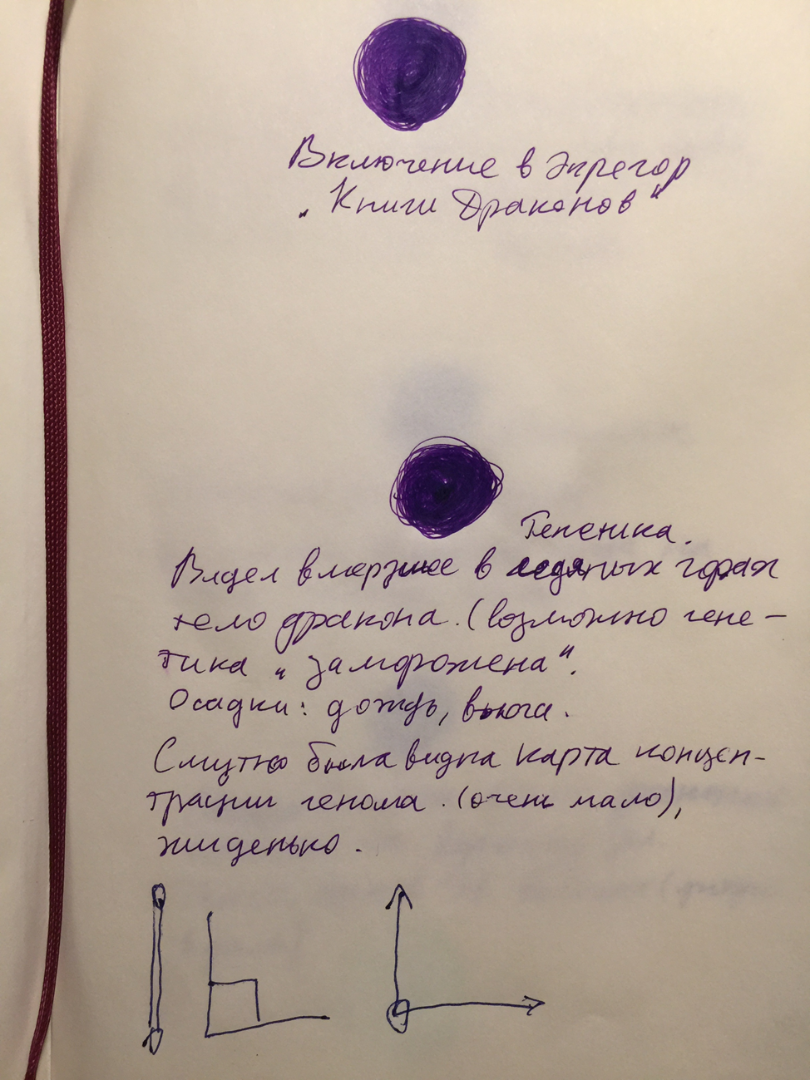 Включение в Эгрегор
„Книги Драконов"
Генетика.
Видел вмерзшее в ледяных горах
тело дракона. (возможно гене-
тика „заморожена".
Осадки: дождь, вьюга.
Смутно была видна карта концен-
трации генома. (очень мало),
жиденько.